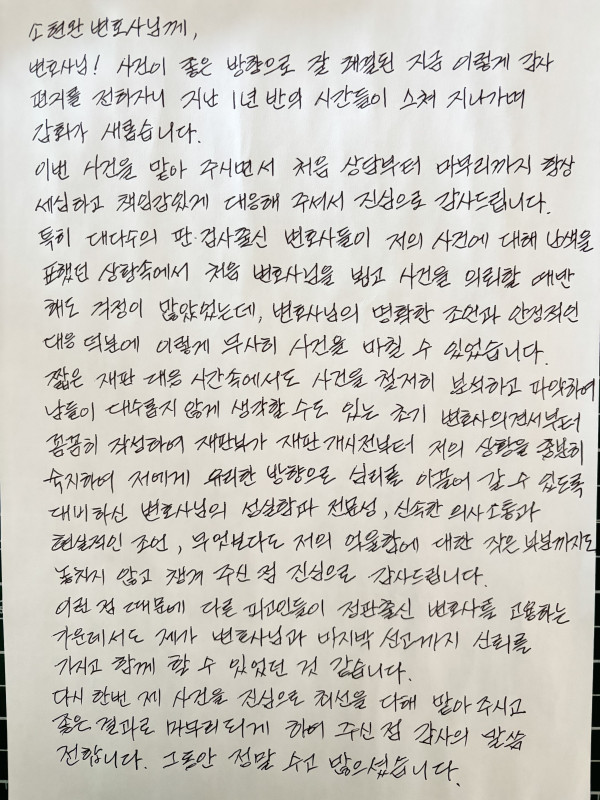 소현완 변호사님께,
변호사님! 사건이 좋은 방향으로 잘 해결된 지금 이렇게 감사
편지를 전하자니 지난 1년 반의 시간들이 스쳐 지나가며
감회가 새롭습니다.
이번 사건을 맡아 주시면서 처음 상담부터 마무리까지 항상
세심하고 책임감있게 대응해 주셔서 진심으로 감사드립니다.
특히 대다수의 판·검사출신 변호사들이 저의 사건에 대해 난색을
표했던 상황속에서 처음 변호사님을 뵙고 사건을 의뢰할 때만
해도 걱정이 많았었는데, 변호사님의 명확한 조언과 안정적인
대응 덕분에 이렇게 무사히 사건을 마칠 수 있었습니다.
짧은 재판 대응 시간속에서도 사건을 철저히 분석하고 파악하여
남들이 대수롭지 않게 생각할 수도 있는 초기 변호사의견서부터
꼼꼼히 작성하여 재판부가 재판 개시전부터 저의 상황을 충분히
숙지하여 저에게 유리한 방향으로 심리를 이끌어 갈 수 있도록
대비하신 변호사님의 성실함과 전문성, 신속한 의사소통과
현실적인 조언, 무엇보다도 저의 억울함에 대한 작은 부분까지도
놓치지 않고 챙겨 주신 점 진심으로 감사드립니다.
이런 점 때문에 다른 피고인들이 전판출신 변호사를 고용하는
가운데서도 제가 변호사님과 마지막 선고까지 신뢰를
가지고 함께 할 수 있었던 것 같습니다.
다시 한번 제 사건을 진심으로 최선을 다해 맡아 주시고
좋은 결과로 마무리되게 하여 주신 점 감사의 말씀
전합니다. 그동안 정말 수고 많으셨습니다.